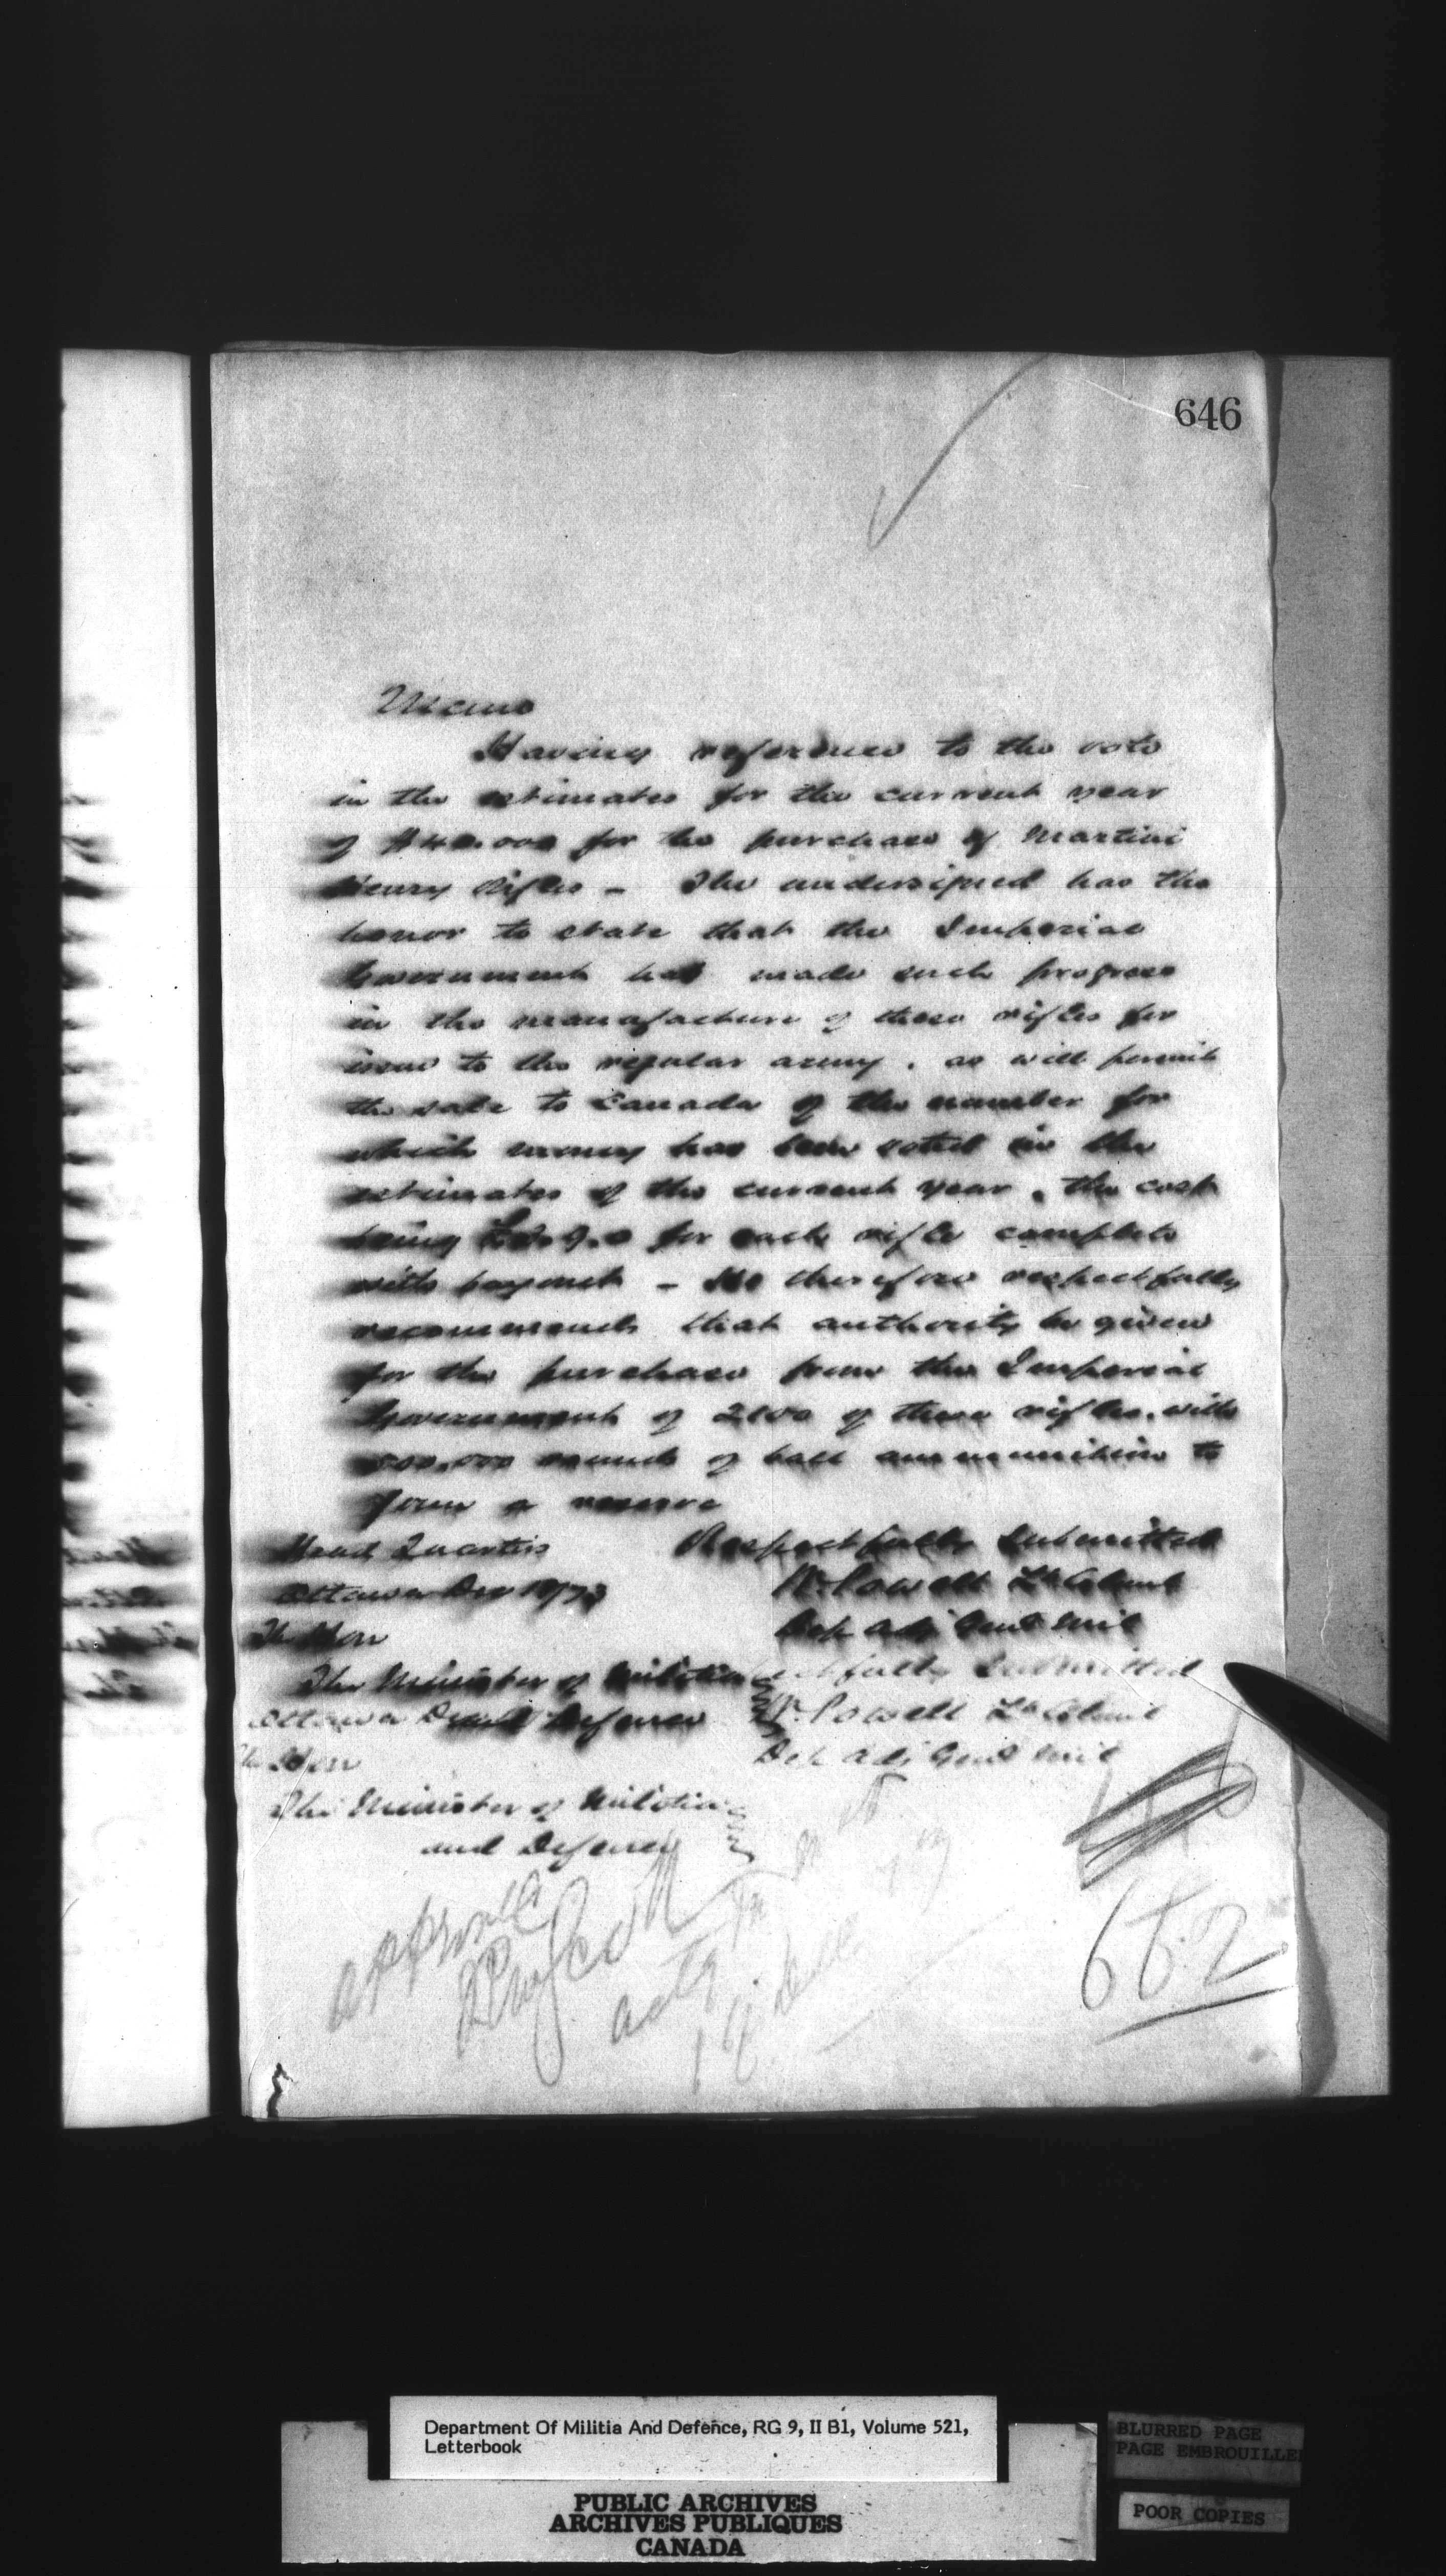 646
Memo
Having reference to the vote
in the estimates for the current year
of $40.000 for the purchase of Martini
Henry Rifles - The undersigned has the
honor to state that the Imperial
Government has made such progress
in the manufacture of these rifles for
issue to the regular army, as will permit
the sale to Canada of the number for
which money has been voted in the
estimates of the current year, the cost
being for each rifle complete
with bayonet - He therefore respectfully
recommends that authority be given
for the purchase from the Imperial
Government of of these rifles, with
rounds of ball ammunition to
form a reserve
Head Quarters Respectfully Submitted
Ottawa Dec W. Powell Lt Colonel
The Hon Dep Adj Genl Mil
The Minister of Militia fully Submitted
Ottawa Defence W. Powell Lt Colonel
Hon Dep Adj Genl Mil
The Minister of Militia
and Defence
approved
R W Scott
actg
652
Department Of Militia And Defence, RG 9, II B1, Volume 521,
Letterbook
PUBLIC ARCHIVES
ARCHIVES PUBLIQUES
CANADA
BLURRED PAGE
PAGE EMBROUILLEE
POOR COPIES